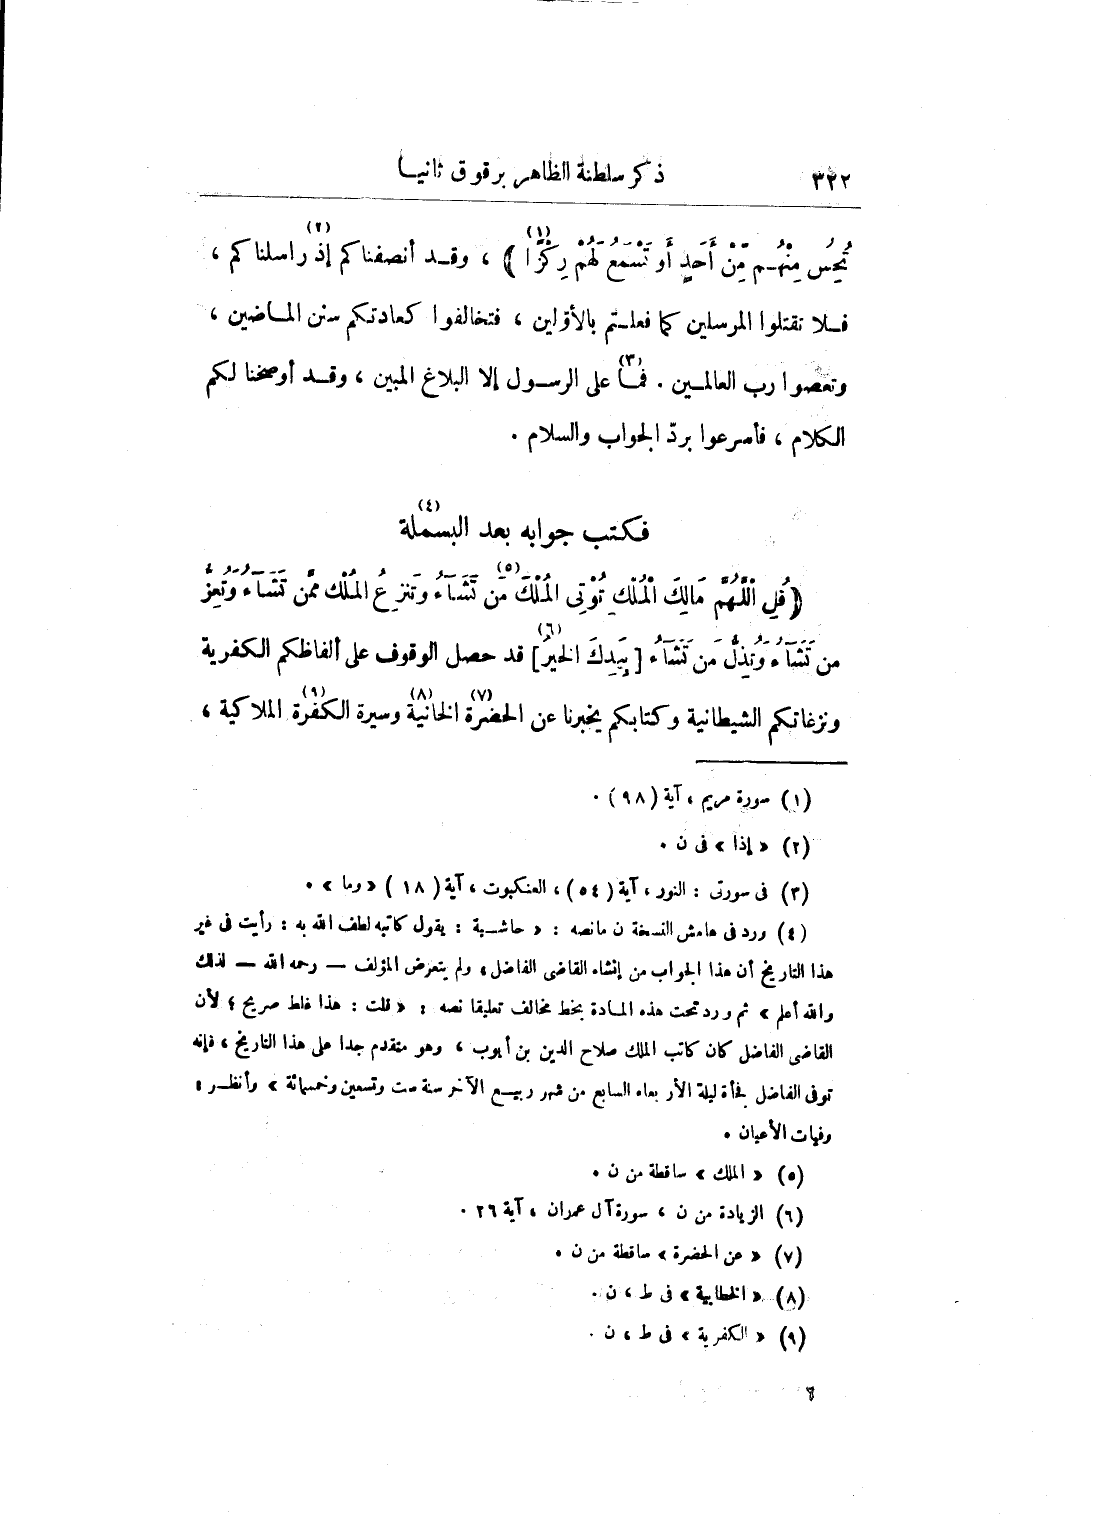 ٣٢٢ ذكر سلطنة الظاهر برقوق ثانيا
تُحِسُّ مِنْهُـم مِّنْ أَحَدٍ أَو تَسْمَعُ لَهُمْ رِكْزًا (١) ﴾ ، وقـد أنصفناكم إذ (٢) راسلناكم ،
فـلا تقتلوا المرسلين كما فعلـتم بالأوّلين ، فتخالفوا كعادتـكم سنن المـاضين ،
وتعصوا رب العالمـين . فمـا (٣) على الرسـول إلا البلاغ المبين ، وقـد أوضحنا لـكم
الـكلام ، فأسرعوا بردّ الجواب والسلام .
فـكتب جوابه بعد البسملة (٤)
﴿ قُلِ اللَّهُمَّ مَالِكَ الْمُلْكِ تُؤْتِى الْمُلْكَ (٥) مَن تَشَآءُ وَتَنزِعُ الْمُلْكَ مِمَّن تَشَآءُ وَتُعِزُّ
مَن تَشَآءُ وَتُذِلُّ مَن تَشَآءُ [ بِيَدِكَ الْخَيْرُ ] (٦) قد حصل الوقوف على ألفاظكم الـكفرية
ونزغاتـكم الشيطانية وكتابكم يخبرنا عن الحضرة (٧) الخانية (٨) وسيرة الـكفرة (٩) الملاكية ،
(١) سورة مريم ، آية (٩٨) .
(٢) « إذا » فى ن .
(٣) فى سورتى : النور ، آية (٥٤) ، العنكبوت ، آية (١٨) « وما » .
(٤) ورد فى هامش النسخة ن ما نصه : « حاشـية : يقول كاتبه لطف الله به : رأيت فى غير
هذا التاريخ أن هذا الجواب من إنشاء القاضى الفاضل ، ولم يتعرض المؤلف – رحمه الله – لذلك
والله أعلم » ثم ورد تحت هذه المـادة بخط مخالف تعليقا نصه : « قلت : هذا غلط صريح ؛ لأن
القاضى الفاضل كان كاتب الملك صلاح الدين بن أيوب ، وهو متقدم جدا على هذا التاريخ ، فإنه
توفى الفاضل فجأة ليلة الأربعاء السابع من شهر ربيـع الآخر سنة ست وتسعين وخمسمائة » وأنظـر :
وفيات الأعيان .
(٥) « الملك » ساقطة من ن .
(٦) الزيادة من ن ، سورة آل عمران ، آية ٢٦ .
(٧) « عن الحضرة » ساقطة من ن .
(٨) « الخطابية » فى ط ، ن .
(٩) « الكفرية » فى ط ، ن .